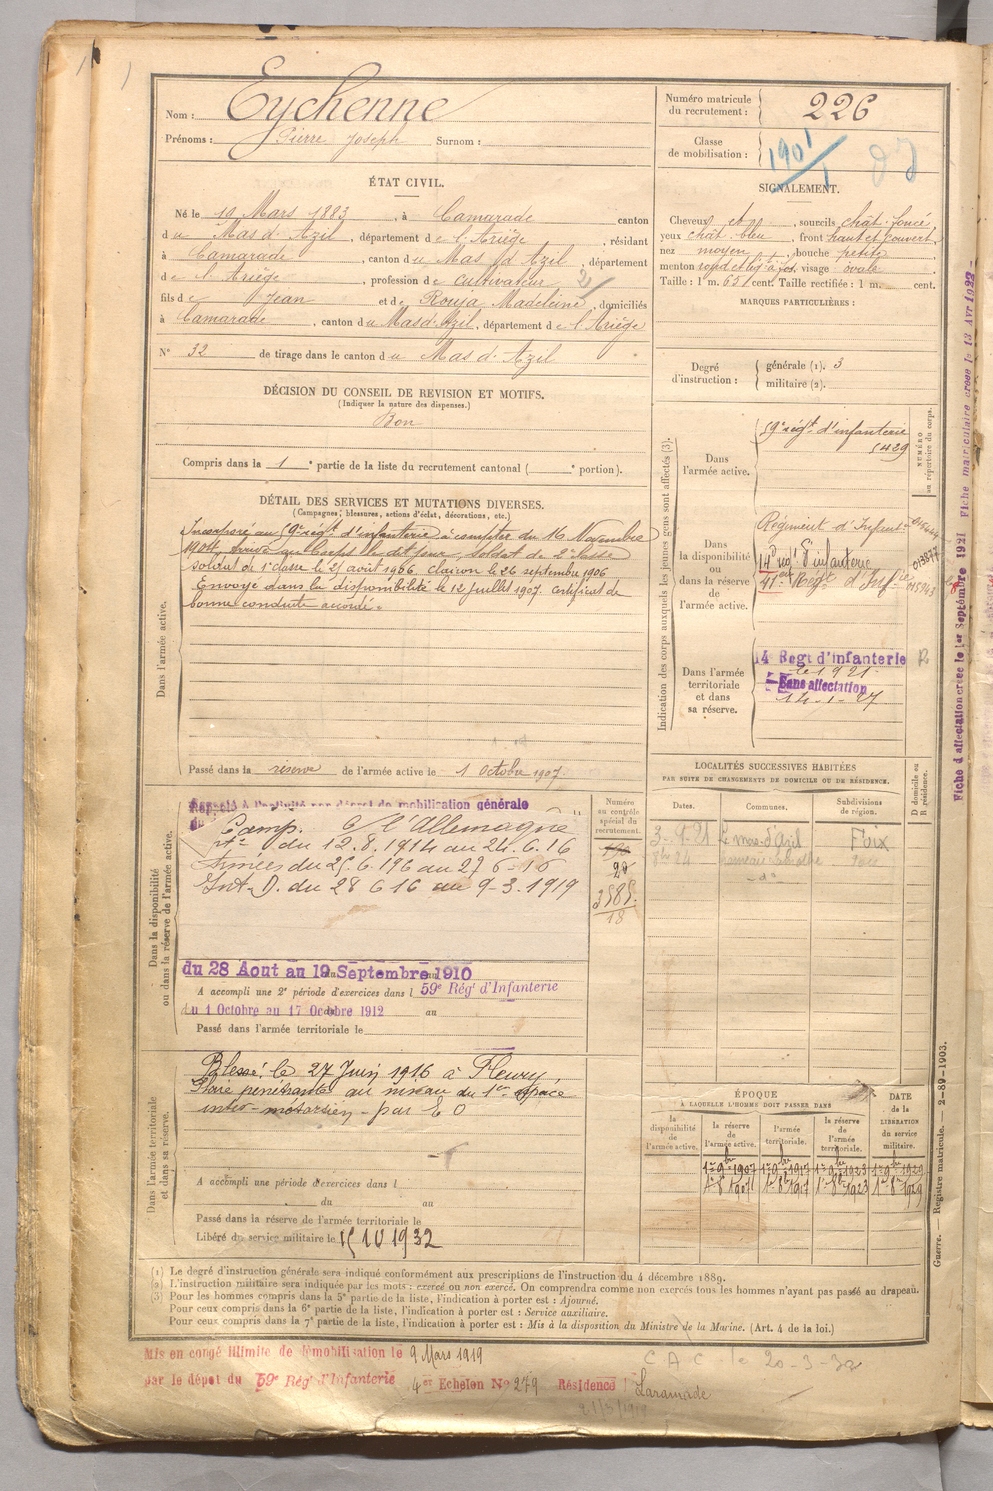 Nom : Eychenne
Prénoms : Pierre Joseph Surnom :
Numéro matricule du recrutement : 226
Classe de mobilisation : 1901
ÉTAT CIVIL.
Né le 10 Mars 1883, à Camarade canton
du Mas d'Azil, département de l'Ariège, résidant
à Camarade, canton du Mas d'Azil, département
de l'Ariège, profession de cultivateur
fils de Jean et de Rouja Madeleine, domiciliés
à Camarade, canton du Mas d'Azil, département de l'Ariège
N° 32 de tirage dans le canton du Mas d'Azil
SIGNALEMENT.
Cheveux et, sourcils chât. foncé,
yeux chât. bleu, front haut et couvert,
nez moyen, bouche petite,
menton rond, visage ovale
Taille : 1 m. 65 cent. Taille rectifiée : 1 m. cent.
MARQUES PARTICULIÈRES :
Degré d'instruction : générale (1). 3
militaire (2).
DÉCISION DU CONSEIL DE REVISION ET MOTIFS.
(Indiquer la nature des dispenses.)
Bon
Compris dans la 1e partie de la liste du recrutement cantonal ( e portion).
DÉTAIL DES SERVICES ET MUTATIONS DIVERSES.
(Campagnes, blessures, actions d'éclat, décorations, etc.)
Dans l'armée active.
Incorporé au 59e régt. d'infanterie à compter du 16 Novembre
1904, arrivé au Corps le dit jour, soldat de 2e classe
soldat de 1e classe le 25 août 1906 clairon le 26 septembre 1906
Envoyé dans la disponibilité le 12 juillet 1907. certificat de
bonne conduite accordé.
Passé dans la réserve de l'armée active le 1 Octobre 1907.
Indication des corps auxquels les jeunes gens sont affectés (3).
NUMÉRO au répertoire du corps.
Dans l'armée active.
59e régt d'infanterie
5429
Dans la disponibilité ou dans la réserve de l'armée active.
Régiment d'Infant
14e régt d'infanterie 013877
Régt d'Infie 015943
Dans l'armée territoriale et dans sa réserve.
14e Regt d'infanterie
le 1921
Sans affectation
14-1-27
R
LOCALITÉS SUCCESSIVES HABITÉES
PAR SUITE DE CHANGEMENTS DE DOMICILE OU DE RÉSIDENCE.
Dates. Communes. Subdivisions de région. D domicile ou R résidence.
3-9-21 Le mas-d'Azil Foix
Dans la disponibilité ou dans la réserve de l'armée active.
Rappelé à l'activité par décret de mobilisation générale
du
Numéro au contrôle spécial du recrutement.
Camp. c/ l'Allemagne
du 12.8.1914 au 24.6.16
Armées du 25.6.196 au 27 6-16
Int-D. du 28 6 16 au 9-3-1919
20
3585
18
du 28 Aout au 19 Septembre 1910
A accompli une 2e période d'exercices dans l 59e Rég' d'Infanterie
du 1 Octobre au 17 Octobre 1912 au
Passé dans l'armée territoriale le
Dans l'armée territoriale et dans sa réserve.
Blessé le 27 Juin 1916 à Fleury,
Plaie pénétrante au niveau du 1er espace
inter-métatarsien - par E O
A accompli une période d'exercices dans l
du au
Passé dans la réserve de l'armée territoriale le
Libéré du service militaire le 15 10 1932
ÉPOQUE
À LAQUELLE L'HOMME DOIT PASSER DANS
DATE de la LIBÉRATION du service militaire.
la disponibilité de l'armée active. la réserve de l'armée active. l'armée territoriale. la réserve de l'armée territoriale.
1er 9bre 1907 1er 9bre 1917 1er 9bre 1923 1er 9bre 1929
1er 8bre 1907 1er 8bre 1917 1er 8bre 1923 1er 8bre 1929
(1) Le degré d'instruction générale sera indiqué conformément aux prescriptions de l'instruction du 4 décembre 1889.
(2) L'instruction militaire sera indiquée par les mots : exercé ou non exercé. On comprendra comme non exercés tous les hommes n'ayant pas passé au drapeau.
(3) Pour les hommes compris dans la 5e partie de la liste, l'indication à porter est : Ajourné.
Pour ceux compris dans la 6e partie de la liste, l'indication à porter est : Service auxiliaire.
Pour ceux compris dans la 7e partie de la liste, l'indication à porter est : Mis à la disposition du Ministre de la Marine. (Art. 4 de la loi.)
Mis en congé illimité de démobilisation le 9 Mars 1919
par le dépôt du 59e Rég' d'Infanterie 4er Echelon No 279 Résidence Camarade
C A C le 20-3-32
Guerre. — Registre matricule. — 2-89-1903.
Fiche d'affectation créée le 1er Septembre 1921 Fiche matriculaire créée le 13 Avr 1922